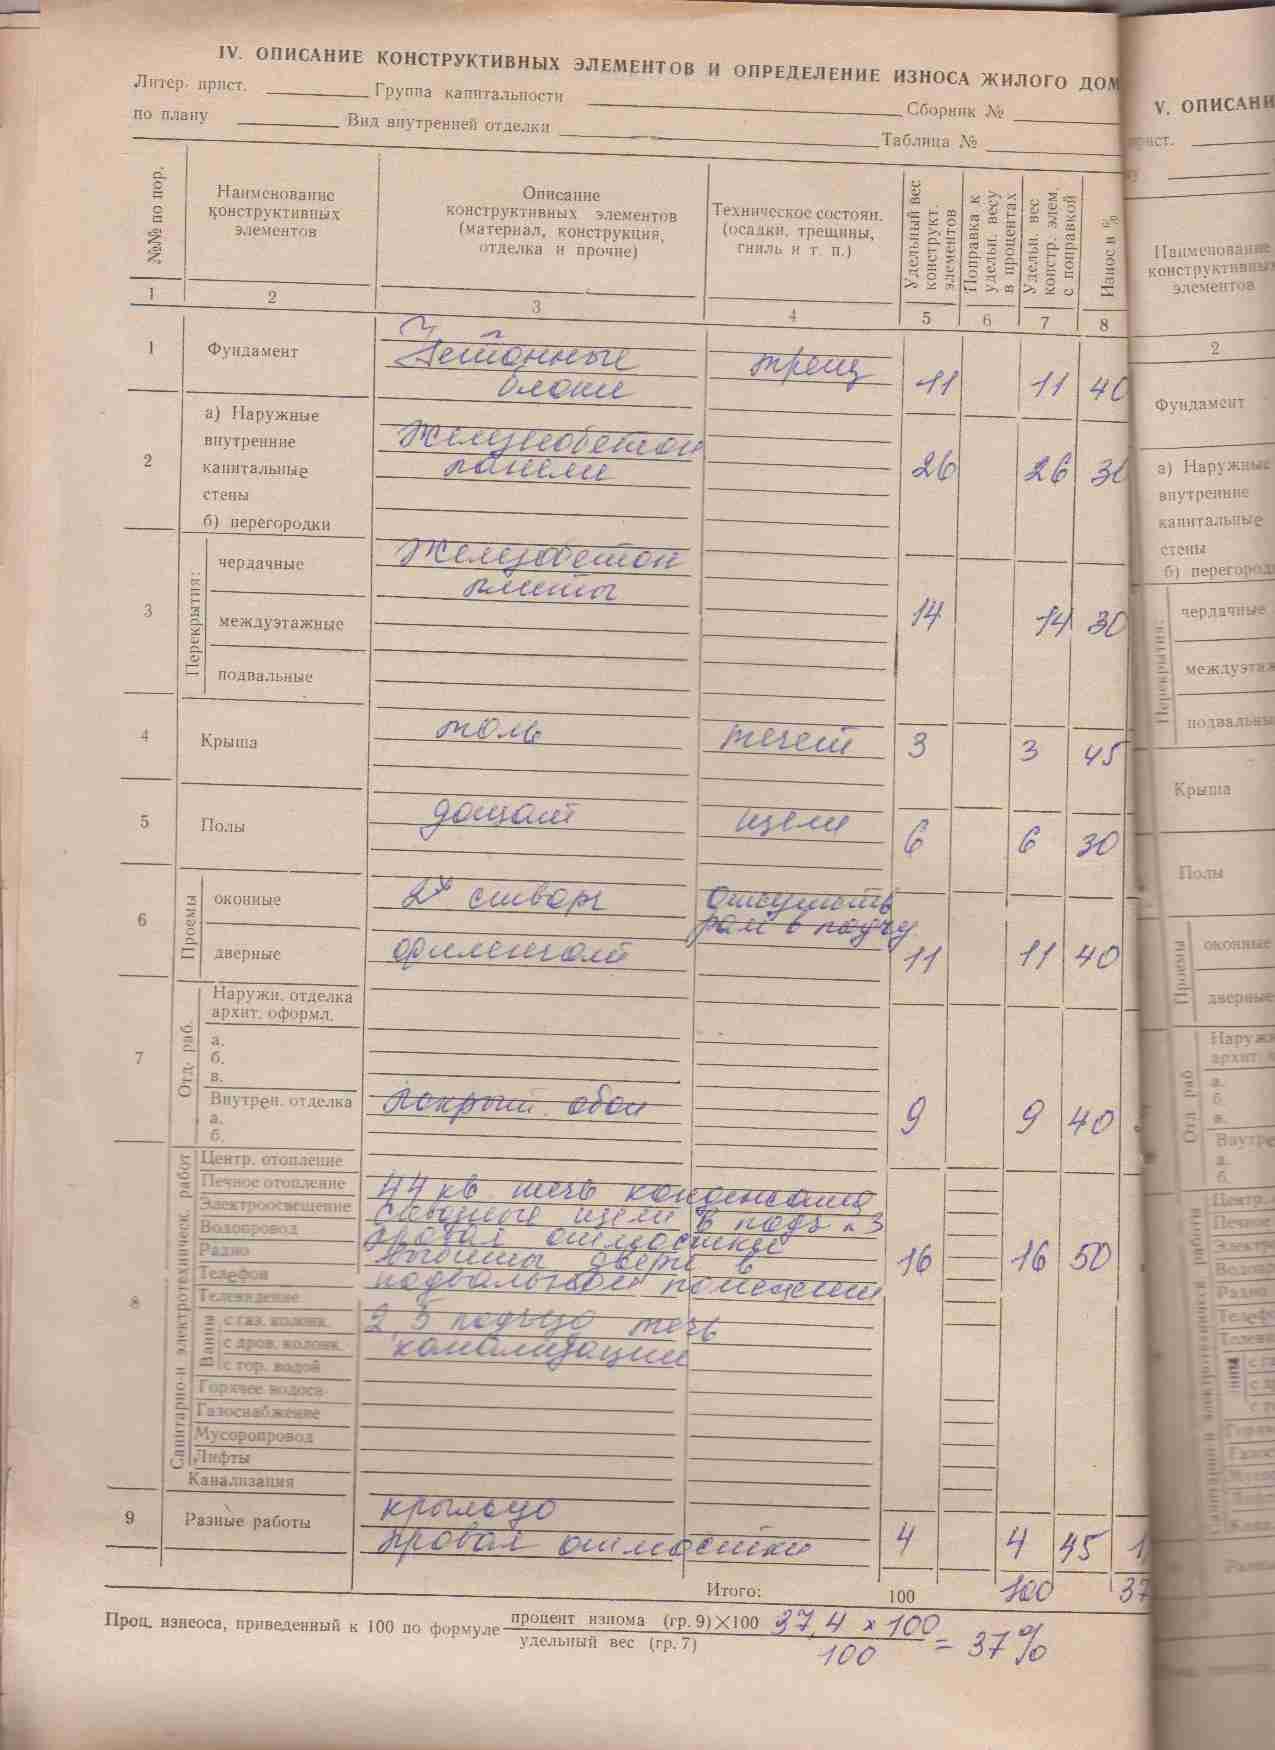 IV. ОПИСАНИЕ КОНСТРУКТИВНЫХ ЭЛЕМЕНТОВ И ОПРЕДЕЛЕНИЕ ИЗНОСА ЖИЛОГО ДОМ
Литер. прист. Группа капитальности Сборник №
по плану Вид внутренней отделки Таблица №
№№ по пор.
Наименование
конструктивных
элементов
Описание
конструктивных элементов
(материал, конструкция,
отделка и прочие)
Техническое состоян.
(осадки, трещины,
гниль и т. п.)
Удельный вес
конструкт.
элементов
Поправка к
удельн. весу
в процентах
Удельн. вес
констр. элем.
с поправкой
Износ в %
1 2 3 4 5 6 7 8
1 Фундамент Бетонные блоки трещ 11 11 40
2 а) Наружные
внутренние
капитальные
стены
б) перегородки
Железобетон
панели
26 26 30
3 Перекрытия:
чердачные
междуэтажные
подвальные
Железобетон
плиты
14 14 30
4 Крыша толь течет 3 3 45
5 Полы дощат щели 6 6 30
6 Проемы
оконные 2х створч отсутств
рам в подъ
дверные филенчат 11 11 40
7 Отд. раб.
Наружн. отделка
архит. оформл.
а.
б.
в.
Внутрен. отделка
а.
б.
обои
9 9 40
8 Санитарно-и электротехническ. работ
Центр. отопление
Печное отопление
Электроосвещение
Водопровод
Радио
Телефон
Телевидение
Ванны
с газ. колонк.
с дров. колонк.
с гор. водой
Горячее водосн
Газоснабжение
Мусоропровод
Лифты
Канализация
44 кв. течь конденсата
щели в подъ. 3
провал отмостки
выбиты двери в
подвальном помещении
2 5 подъезд течь
канализации
16 16 50
9 Разные работы крыльцо
провал отмостки 4 4 45 1
Итого: 100 100 37
Проц. изнеоса, приведенный к 100 по формуле процент изнома (гр. 9)×100 37,4 x 100
удельный вес (гр. 7) 100 = 37%
V. ОПИСАНИ
Наименование
конструктивных
элементов
2
Фундамент
а) Наружные
внутренние
капитальные
стены
б) перегород
Перекрытия:
чердачные
междуэтаж
подвальны
Крыша
Полы
Проемы
оконные
дверные